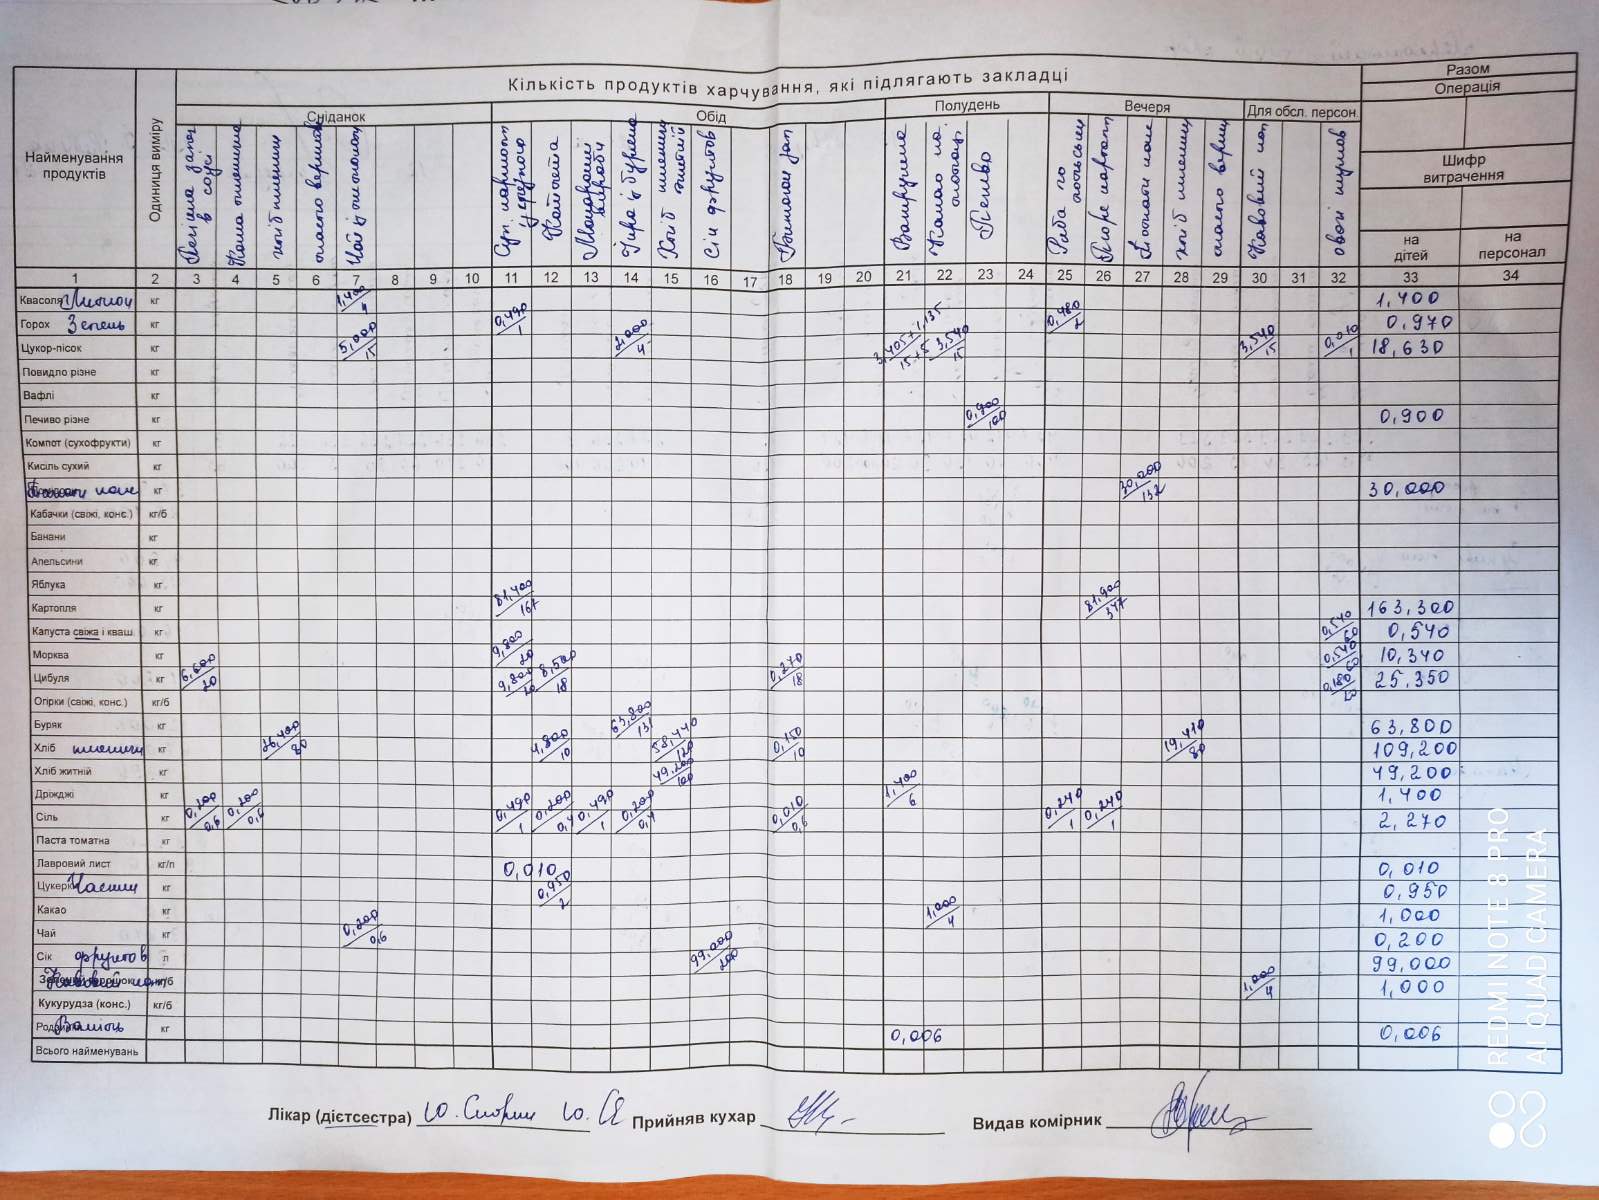 Кількість продуктів харчування, які підлягають закладці
Разом
Операція
Шифр витрачення
на дітей
на персонал
Найменування продуктів
Одиниця виміру
Сніданок
Обід
Полудень
Вечеря
Для обсл. персон.
Каша пшенична
хліб пшеничн
Чай із лимоном
Капуста
Ікра із буряка
Хліб житній
Сік фруктов
Какао на молоці
Печиво
Риба по польськи
Пюре картопл
хліб пшеничн
Кавовий нап
1 2 3 4 5 6 7 8 9 10 11 12 13 14 15 16 17 18 19 20 21 22 23 24 25 26 27 28 29 30 31 32 33 34
Квасоля Лимон кг 1,400/4 1,400
Горох Зелень кг 0,490/1 0,480/2 0,970
Цукор-пісок кг 5,000/15 2,000/4 3,405+1,135/15+5 3,540/15 3,540/15 0,010/1 18,630
Повидло різне кг
Вафлі кг
Печиво різне кг 0,900/100 0,900
Компот (сухофрукти) кг
Кисіль сухий кг
кг 30,000/132 30,000
Кабачки (свіжі, конс.) кг/б
Банани кг
Апельсини кг
Яблука кг
Картопля кг 81,400/167 81,900/347 163,300
Капуста свіжа і кваш. кг 0,540/60 0,540
Морква кг 9,800/20 0,540/60 10,340
Цибуля кг 6,600/20 9,800/20 8,500/18 0,270/18 0,180/20 25,350
Огірки (свіжі, конс.) кг/б
Буряк кг 63,800/131 63,800
Хліб пшеничн кг 26,400/80 4,800/10 58,440/120 0,150/10 19,410/80 109,200
Хліб житній кг 49,200/100 49,200
Дріжджі кг 1,400/6 1,400
Сіль кг 0,200/0,6 0,200/0,6 0,490/1 0,200/0,4 0,490/1 0,200/0,4 0,010/0,6 0,240/1 0,240/1 2,270
Паста томатна кг
Лавровий лист кг/п 0,010 0,010
Цукерк Часник кг 0,950/2 0,950
Какао кг 1,000/4 1,000
Чай кг 0,200/0,6 0,200
Сік фруктов л 99,000/200 99,000
Кавовий нап кг/б 1,000/4 1,000
Кукурудза (конс.) кг/б
Родзинки Ваніль кг 0,006 0,006
Всього найменувань
Лікар (дієтсестра)
Прийняв кухар
Видав комірник
REDMI NOTE 8 PRO
AI QUAD CAMERA